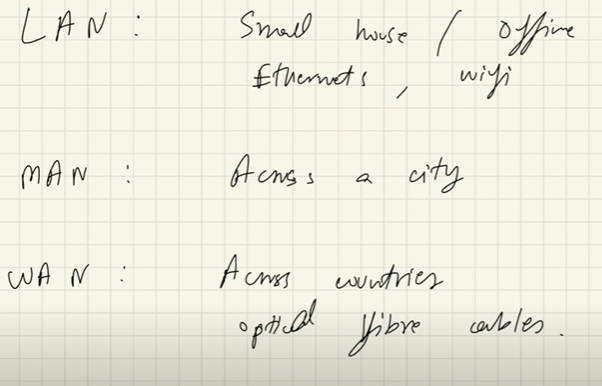 LAN : Small house / office
Ethernets, wifi
MAN : Across a city
WAN : Across countries
optical fibre cables.